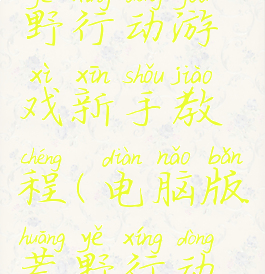 野行动游
xì xīn shǒu jiào
戏新手教
chéng diàn nǎo bǎn
程(电脑版
huāng yě xíng dòng
荒野行动